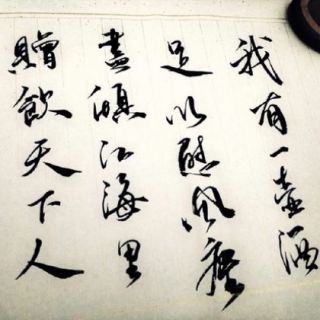 我有一壺酒
足以慰風塵
盡傾江海里
贈飲天下人